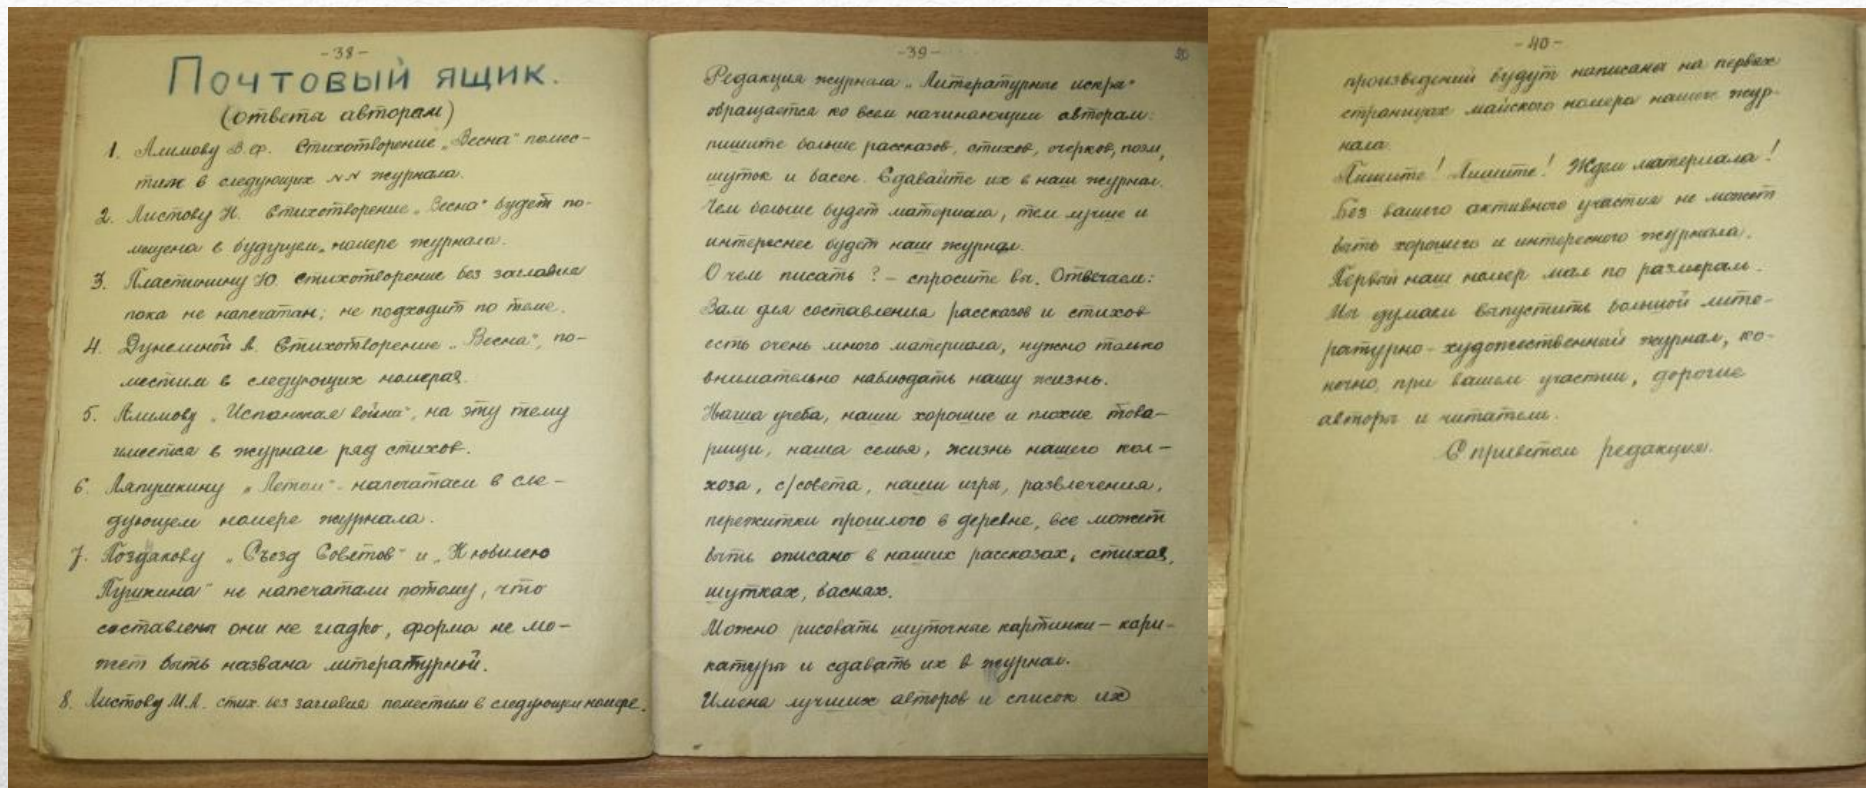 -38-
Почтовый ящик.
(ответы авторам)
1. Алимову В.Ф. Стихотворение „Весна" помес-
тим в следующих №№ журнала.
2. Листову Н. Стихотворение „Весна" будет по-
мещена в будущем номере журнала.
3. Пластинину Ю. Стихотворение без заглавия
пока не напечатан; не подходит по теме.
4. Дунелиной А. Стихотворение „Весна", по-
местим в следующих номерах.
5. Алимову „Испанская война", на эту тему
имеется в журнале ряд стихов.
6. Ляпушкину „Летом" напечатаем в сле-
дующем номере журнала.
7. Поздякову „Съезд Советов" и „К юбилею
Пушкина" не напечатали потому, что
составлены они не гладко, форма не мо-
жет быть названа литературной.
8. Листову М.А. стих. без заглавия поместим в следующем номере.
-39-
Редакция журнала „Литературные искры"
обращается ко всем начинающим авторам:
пишите больше рассказов, стихов, очерков, поэм,
шуток и басен. Сдавайте их в наш журнал.
Чем больше будет материала, тем лучше и
интереснее будет наш журнал.
О чем писать? – спросите вы. Отвечаем:
Вам для составления рассказов и стихов
есть очень много материала, нужно только
внимательно наблюдать нашу жизнь.
Наша учеба, наши хорошие и плохие това-
рищи, наша семья, жизнь нашего кол-
хоза, с/совета, наши игры, развлечения,
пережитки прошлого в деревне, все может
быть описано в наших рассказах, стихах,
шутках, баснах.
Можно рисовать шуточные картинки – кари-
катуры и сдавать их в журнал.
Имена лучших авторов и список их
-40-
произведений будут написаны на первых
страницах майского номера нашего жур-
нала.
Пишите! Пишите! Ждем материала!
Без вашего активного участия не может
быть хорошего и интересного журнала.
Первый наш номер мал по размерам.
Мы думаем выпустить большой лите-
ратурно-художественный журнал, ко-
нечно, при вашем участии, дорогие
авторы и читатели.
С приветом редакция.